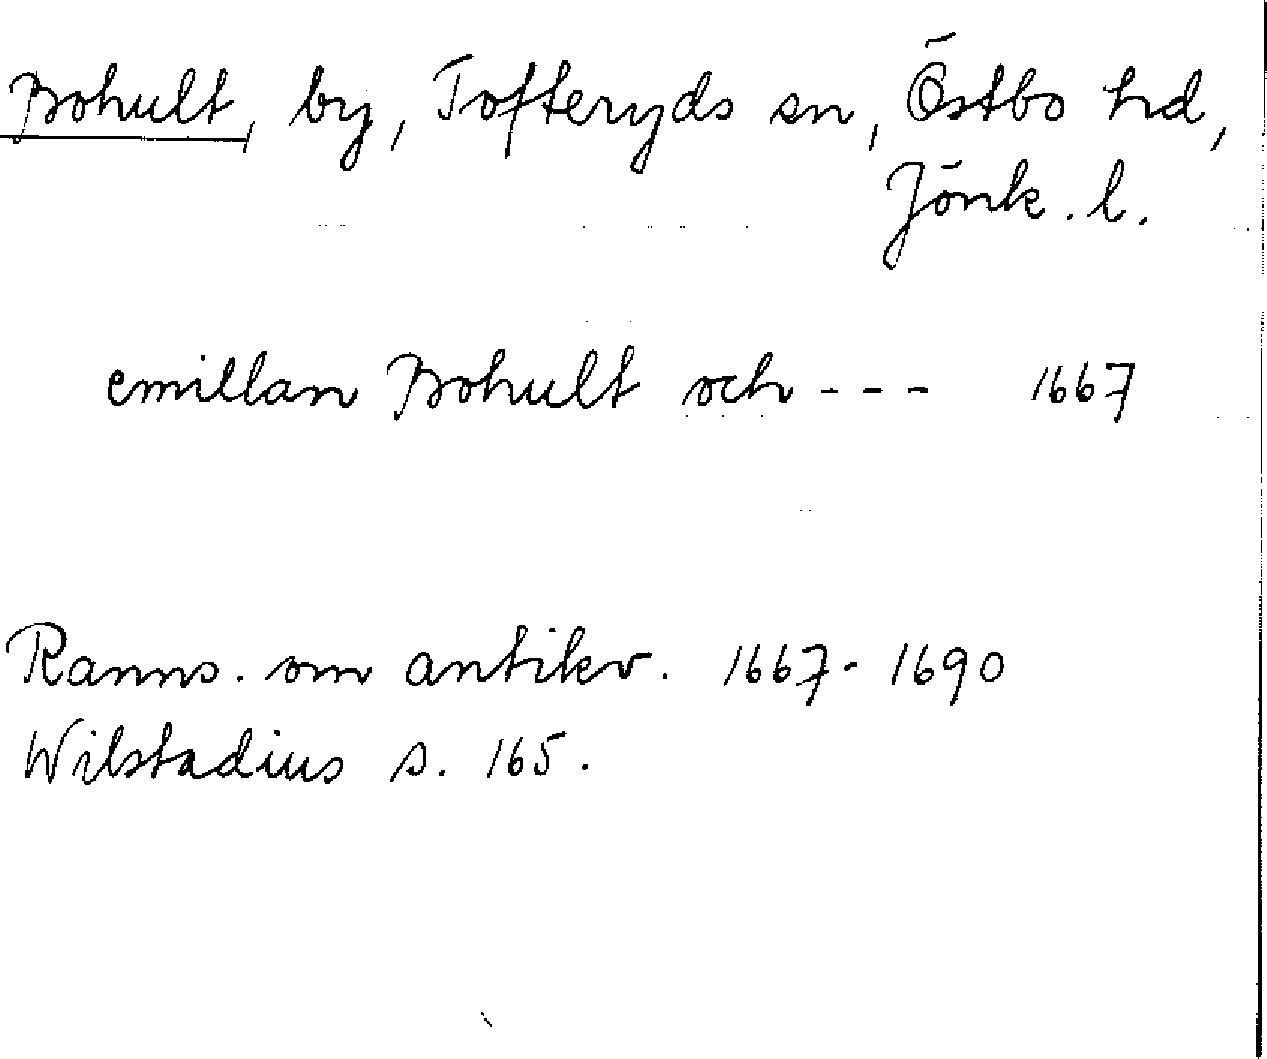 Bohult, by, Tofteryds sn, Östbo hd,
Jönk. l.
emillan Bohult och - - - 1667
Ranns. om antikv. 1667-1690
Wilstadius s. 165.